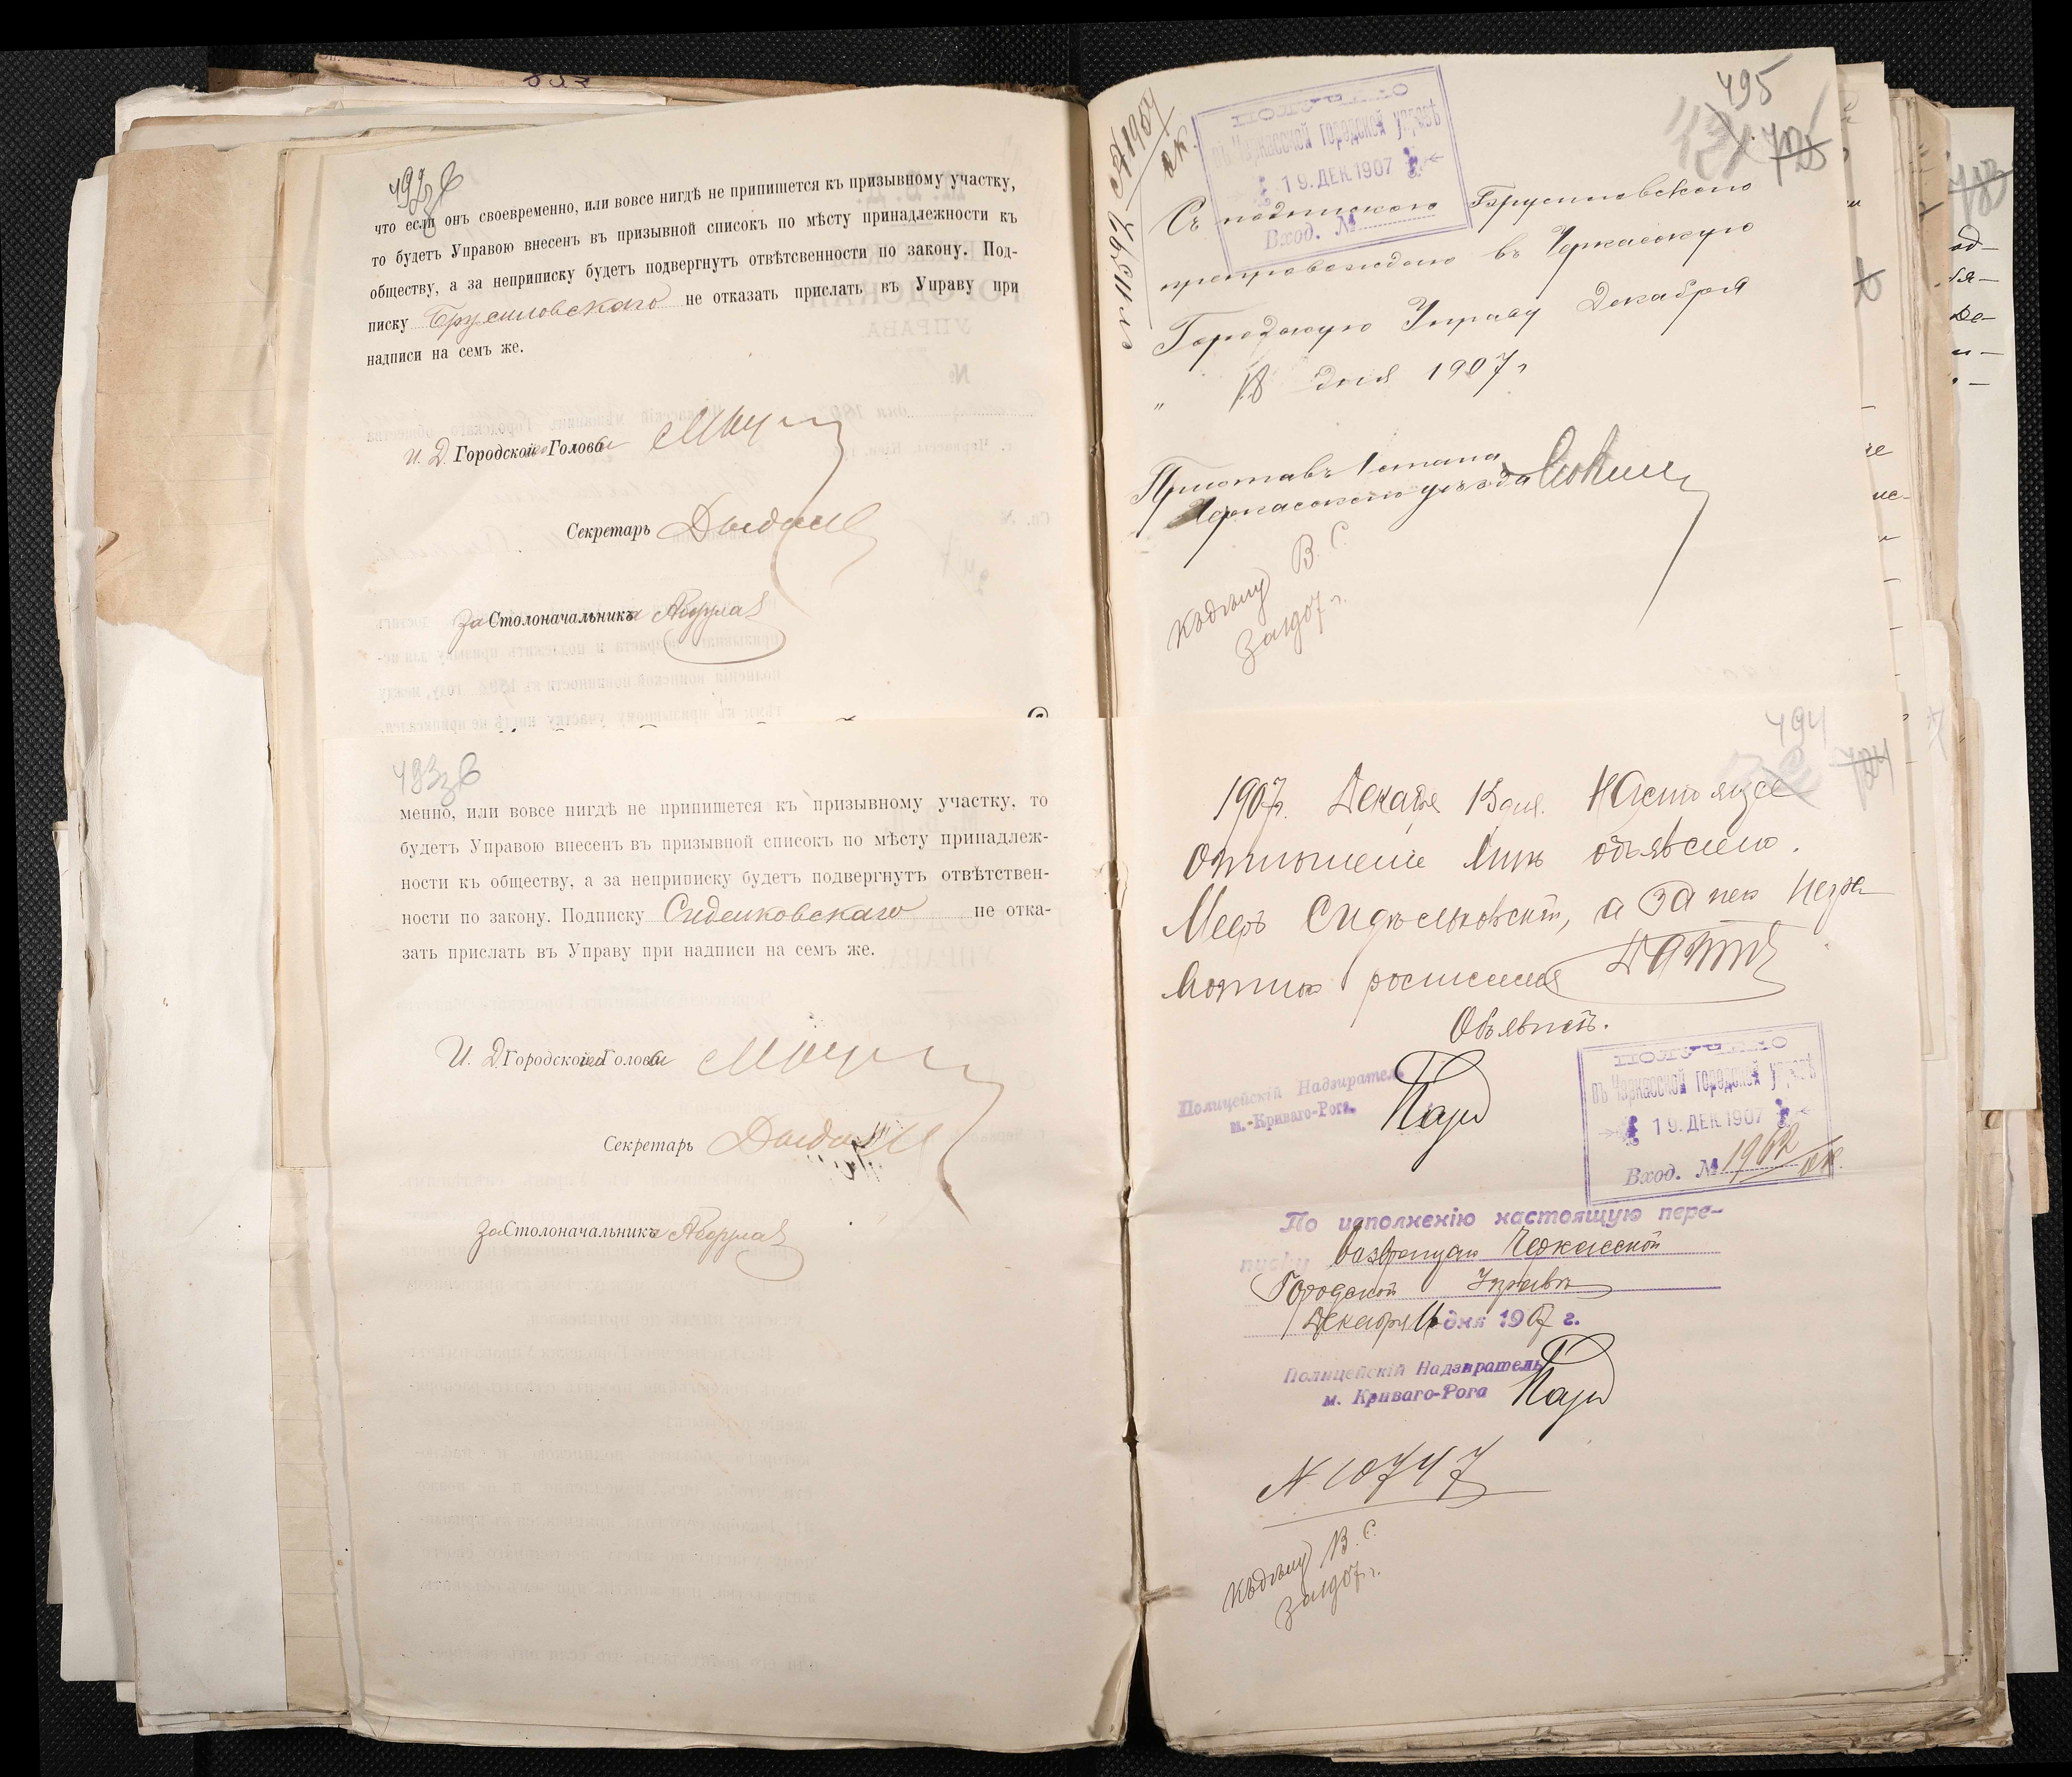 что если онъ своевременно, или вовсе нигдѣ не припишется къ призывному участку,
то будетъ Управою внесенъ въ призывной списокъ по мѣсту принадлежности къ
обществу, а за неприписку будетъ подвергнутъ отвѣтсвенности по закону. Под-
писку Брусиловскаго не отказать прислать въ Управу при
надписи на семъ же.
И. Д. Городской Голова
Секретарь
За Столоначальника
493
менно, или вовсе нигдѣ не припишется къ призывному участку, то
будетъ Управою внесенъ въ призывной списокъ по мѣсту принадлеж-
ности къ обществу, а за неприписку будетъ подвергнутъ отвѣтствен-
ности по закону. Подписку Сиделковскаго не отка-
зать прислать въ Управу при надписи на семъ же.
И. Д. Городской Голова
Секретарь
За Столоначальника
495
725
ПОЛУЧЕНО
въ Черкасской городской управѣ
19. ДЕК. 1907
Вход. №
Съ подпискою Брусиловскаго
препровождаю въ Черкасскую
Городскую Управу Декабря
„ 18 дня 1907 г
Приставъ 1 стана
Черкасскаго уѣзда
Къ дѣлу В. С.
За 1907 г.
494
724
1907 г. Декабря 15 дня. Настоящее
отношеніе мнѣ объявлено.
Мееръ Сидельковскій, а за него негра
мотного росписался
Объявилъ.
Полицейскій Надзиратель
м. Криваго-Рога
ПОЛУЧЕНО
въ Черкасской городской управѣ
19. ДЕК. 1907
Вход. № 1962
По исполненію настоящую пере-
писку возвращаю Черкасской
Городской Управѣ
Декабря 16 дня 1907 г.
Полицейскій Надзиратель
м. Криваго-Рога
№ 10747
Къ дѣлу В. С.
За 1907 г.